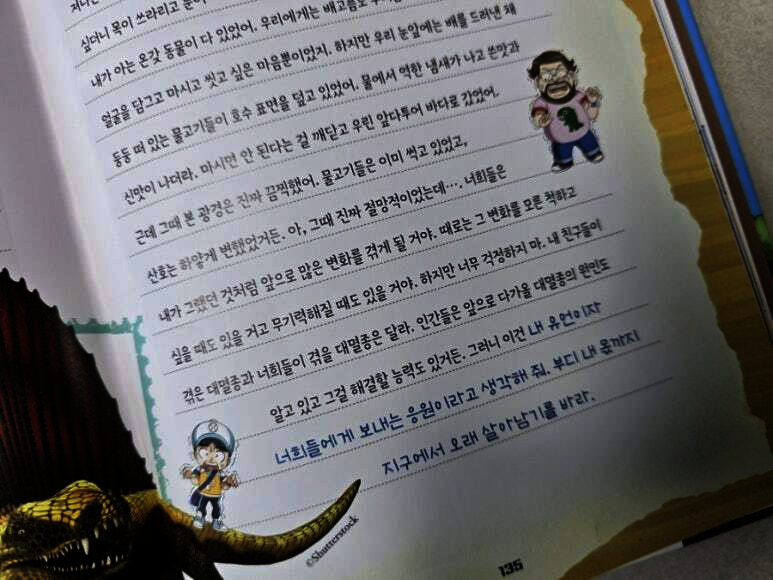 싶더니 목이 쓰라리고
내가 아는 온갖 동물이 다 있었어. 우리에게는 배고픔도
얼굴을 담그고 마시고 씻고 싶은 마음뿐이었지. 하지만 우리 눈앞에는 배를 드러낸 채
둥둥 떠 있는 물고기들이 호수 표면을 덮고 있었어. 물에서 역한 냄새가 나고 쓴맛과
신맛이 나더라. 마시면 안 된다는 걸 깨닫고 우린 앞다투어 바다로 갔었어.
근데 그때 본 광경은 진짜 끔찍했어. 물고기들은 이미 썩고 있었고,
산호는 하얗게 변했었거든. 아, 그때 진짜 절망적이었는데…. 너희들은
내가 그랬던 것처럼 앞으로 많은 변화를 겪게 될 거야. 때로는 그 변화를 모른 척하고
싶을 때도 있을 거고 무기력해질 때도 있을 거야. 하지만 너무 걱정하지 마. 내 친구들이
겪은 대멸종과 너희들이 겪을 대멸종은 달라. 인간들은 앞으로 다가올 대멸종의 원인도
알고 있고 그걸 해결할 능력도 있거든. 그러니 이건 내 유언이자
너희들에게 보내는 응원이라고 생각해 줘. 부디 내 몫까지
지구에서 오래 살아남기를 바라.
©Shutterstock
135